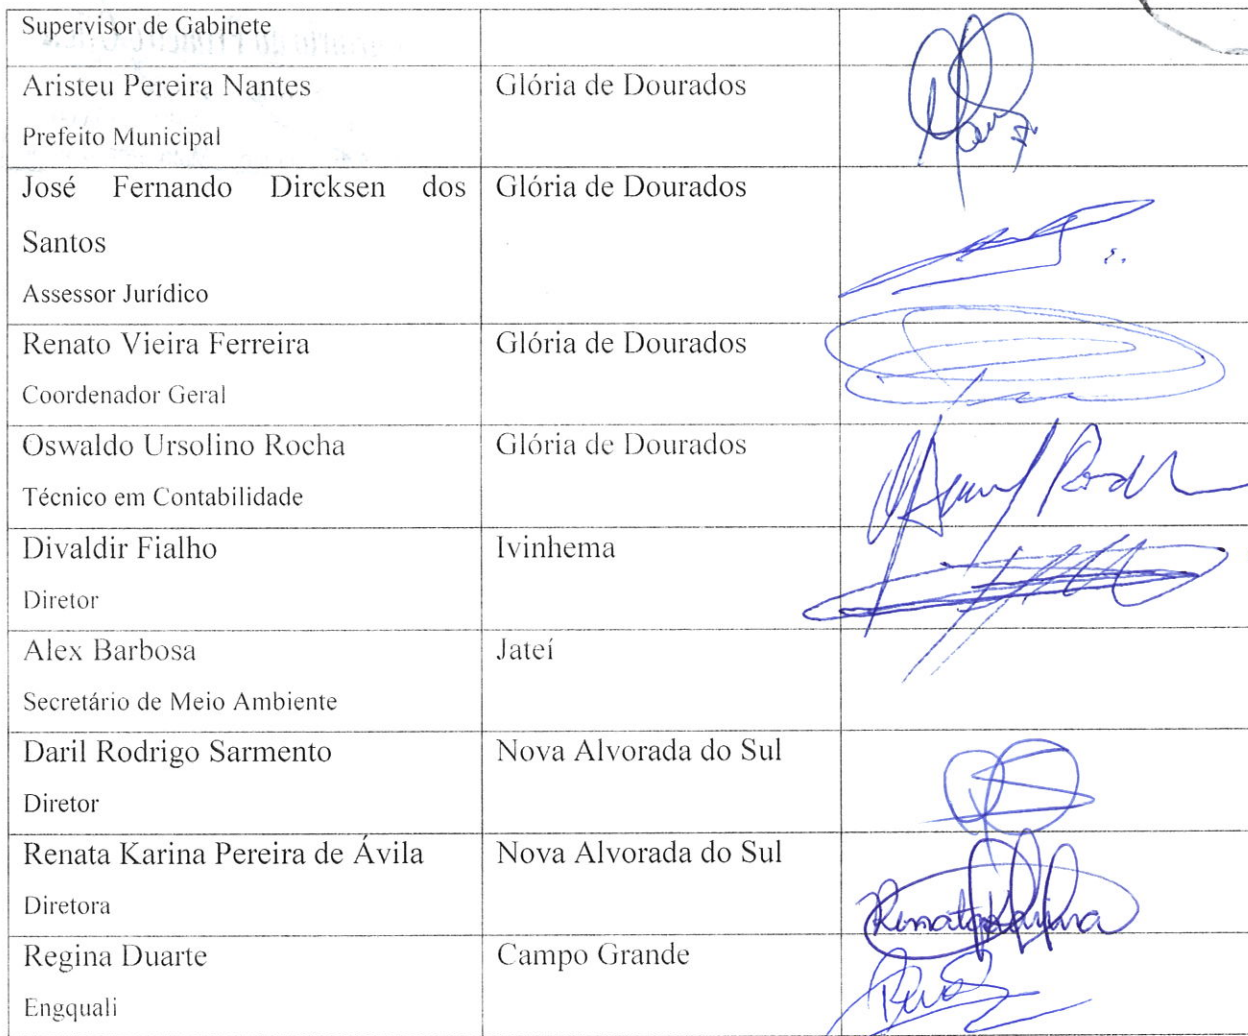 Supervisor de Gabinete
Aristeu Pereira Nantes
Prefeito Municipal
Glória de Dourados
José Fernando Dircksen dos
Santos
Assessor Jurídico
Glória de Dourados
Renato Vieira Ferreira
Coordenador Geral
Glória de Dourados
Oswaldo Ursolino Rocha
Técnico em Contabilidade
Glória de Dourados
Divaldir Fialho
Diretor
Ivinhema
Alex Barbosa
Secretário de Meio Ambiente
Jateí
Daril Rodrigo Sarmento
Diretor
Nova Alvorada do Sul
Renata Karina Pereira de Ávila
Diretora
Nova Alvorada do Sul
Renata Karina
Regina Duarte
Engquali
Campo Grande